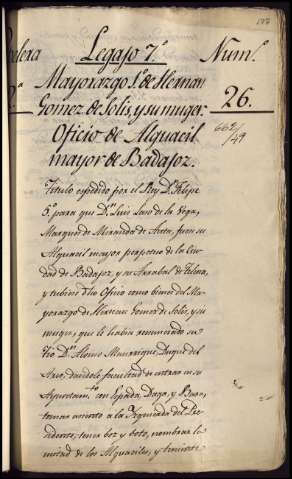 137
Legajo 7.º
Num.º
26.
662/49
Mayorazgo 1.º de Hernan
Gomez de Solis, y su muger.
Oficio de Alguacil
mayor de Badajoz.
Titulo expedido por el Rey D.n Felipe
5.º para que D.n Luis Laso de la Vega,
Marques de Miranda de Auta, fuese su
Alguacil mayor perpetuo de la Ciu
dad de Badajoz, y su Arrabal de Telena,
y tubiese dho Oficio como bienes del Ma
yorazgo de Hernan Gomez de Solis, y su
muger, que le habia renunciado su
Tio D.n Alonso Manrrique Duque del
Arco, dandole facultad de entrar en su
Ayuntam.to con Espada, Daga, y Baston,
tomar asiento a la Izquierda del Pre
sidente, tener boz y boto, nombrar la
mitad de los Alguaciles, y teniente